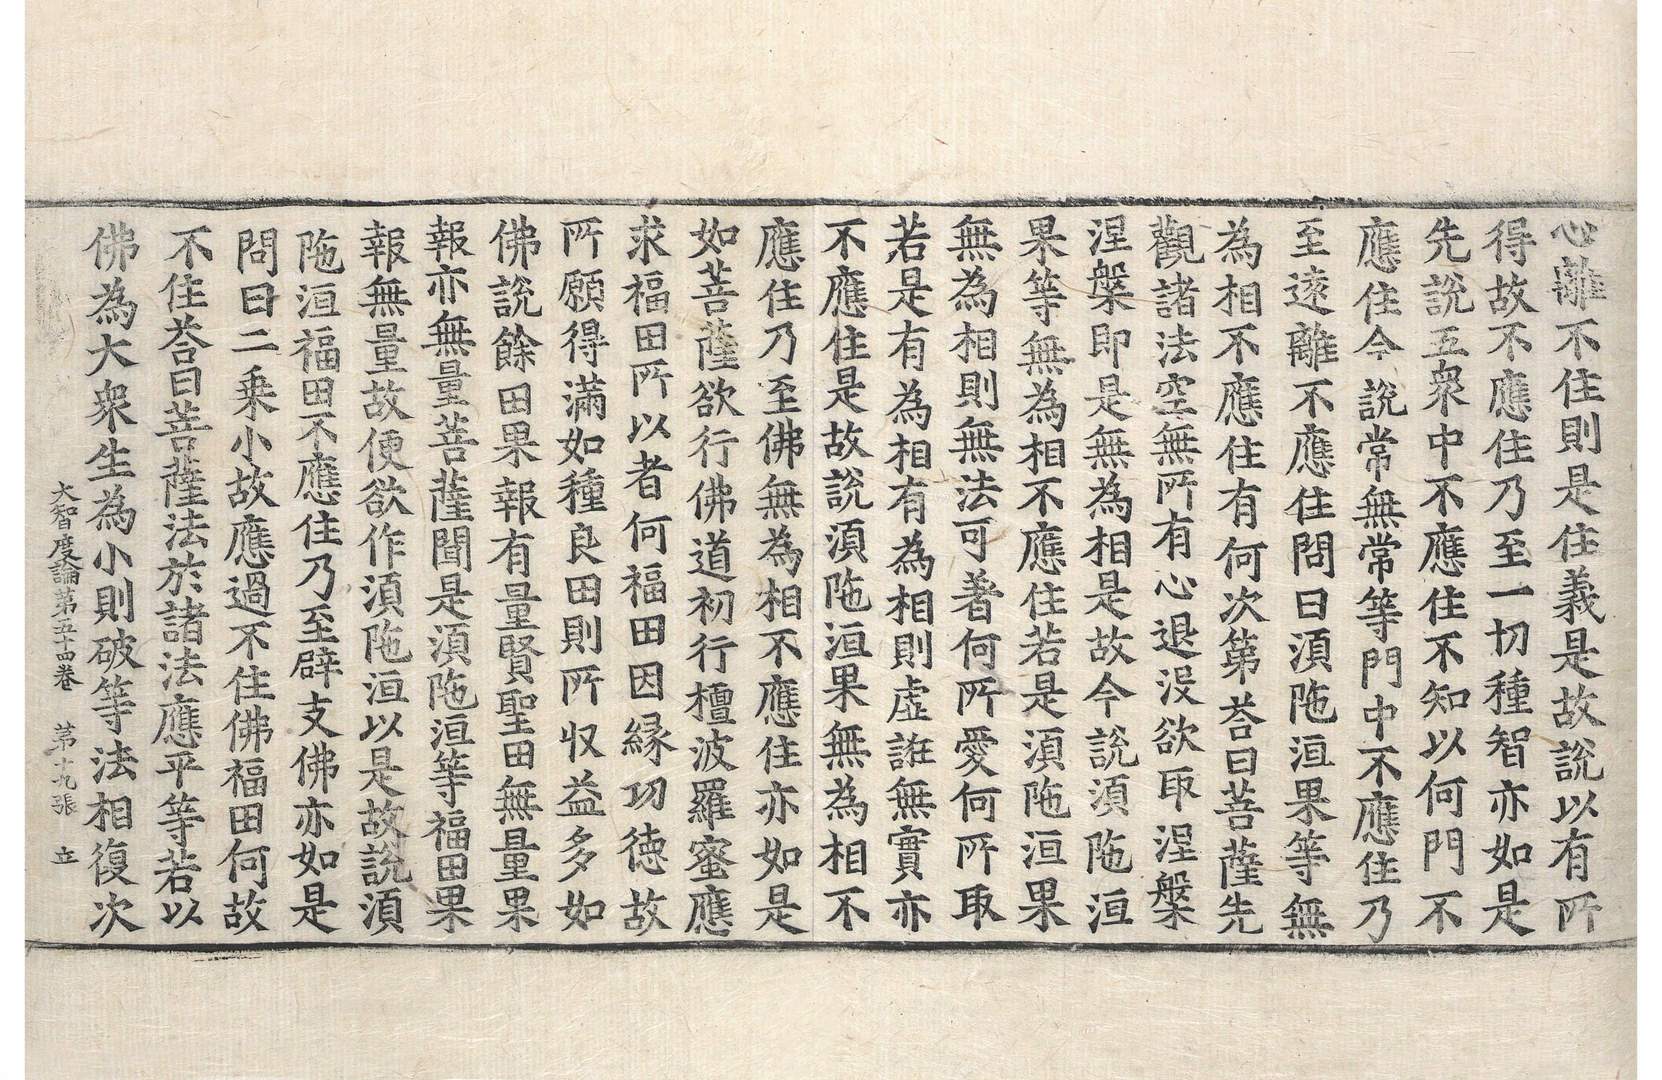 心離不住則是住義是故說以有所
得故不應住乃至一切種智亦如是
先說五衆中不應住不知以何門不
應住今說常無常等門中不應住乃
至遠離不應住問曰湏陁洹果等無
為相不應住有何次第荅曰菩薩先
觀諸法空無所有心退没欲取涅槃
涅槃即是無為相是故今說湏陁洹
果等無為相不應住若是湏陁洹果
無為相則無法可著何所愛何所取
若是有為相有為相則虛誑無實亦
不應住是故說湏陁洹果無為相不
應住乃至佛無為相不應住亦如是
如菩薩欲行佛道初行檀波羅蜜應
求福田所以者何福田因緣功德故
所願得滿如種良田則所収益多如
佛說餘田果報有量賢聖田無量果
報亦無量菩薩聞是湏陁洹等福田果
報無量故便欲作湏陁洹以是故說湏
陁洹福田不應住乃至辟支佛亦如是
問曰二乘小故應過不住佛福田何故
不住荅曰菩薩法於諸法應平等若以
佛為大衆生為小則破等法相復次
大智度論第五十四卷 第十九張 立